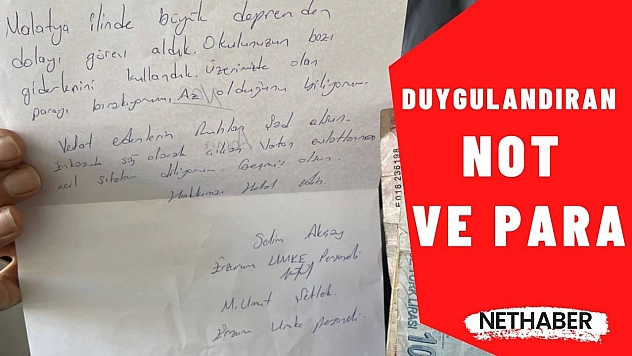 Malatya ilinde büyük depremden
dolayı görev aldık. Okulunuzun bazı
giderlerini kullandık. Üzerimizde olan
parayı bırakıyorum. Az olduğunu biliyorum.
Vefat edenlerin Ruhları Şad olsun.
olarak Vatan evlatlarına
acil şifalar diliyorum. Geçmiş olsun.
Hakkınızı Helal edin.
Selim Akçay
Erzurum UMKE Personeli
M. Umut
Erzurum Umke personeli
DUYGULANDIRAN
NOT
VE PARA
E018 236198
TÜRK LİRASI
10
NETHABER